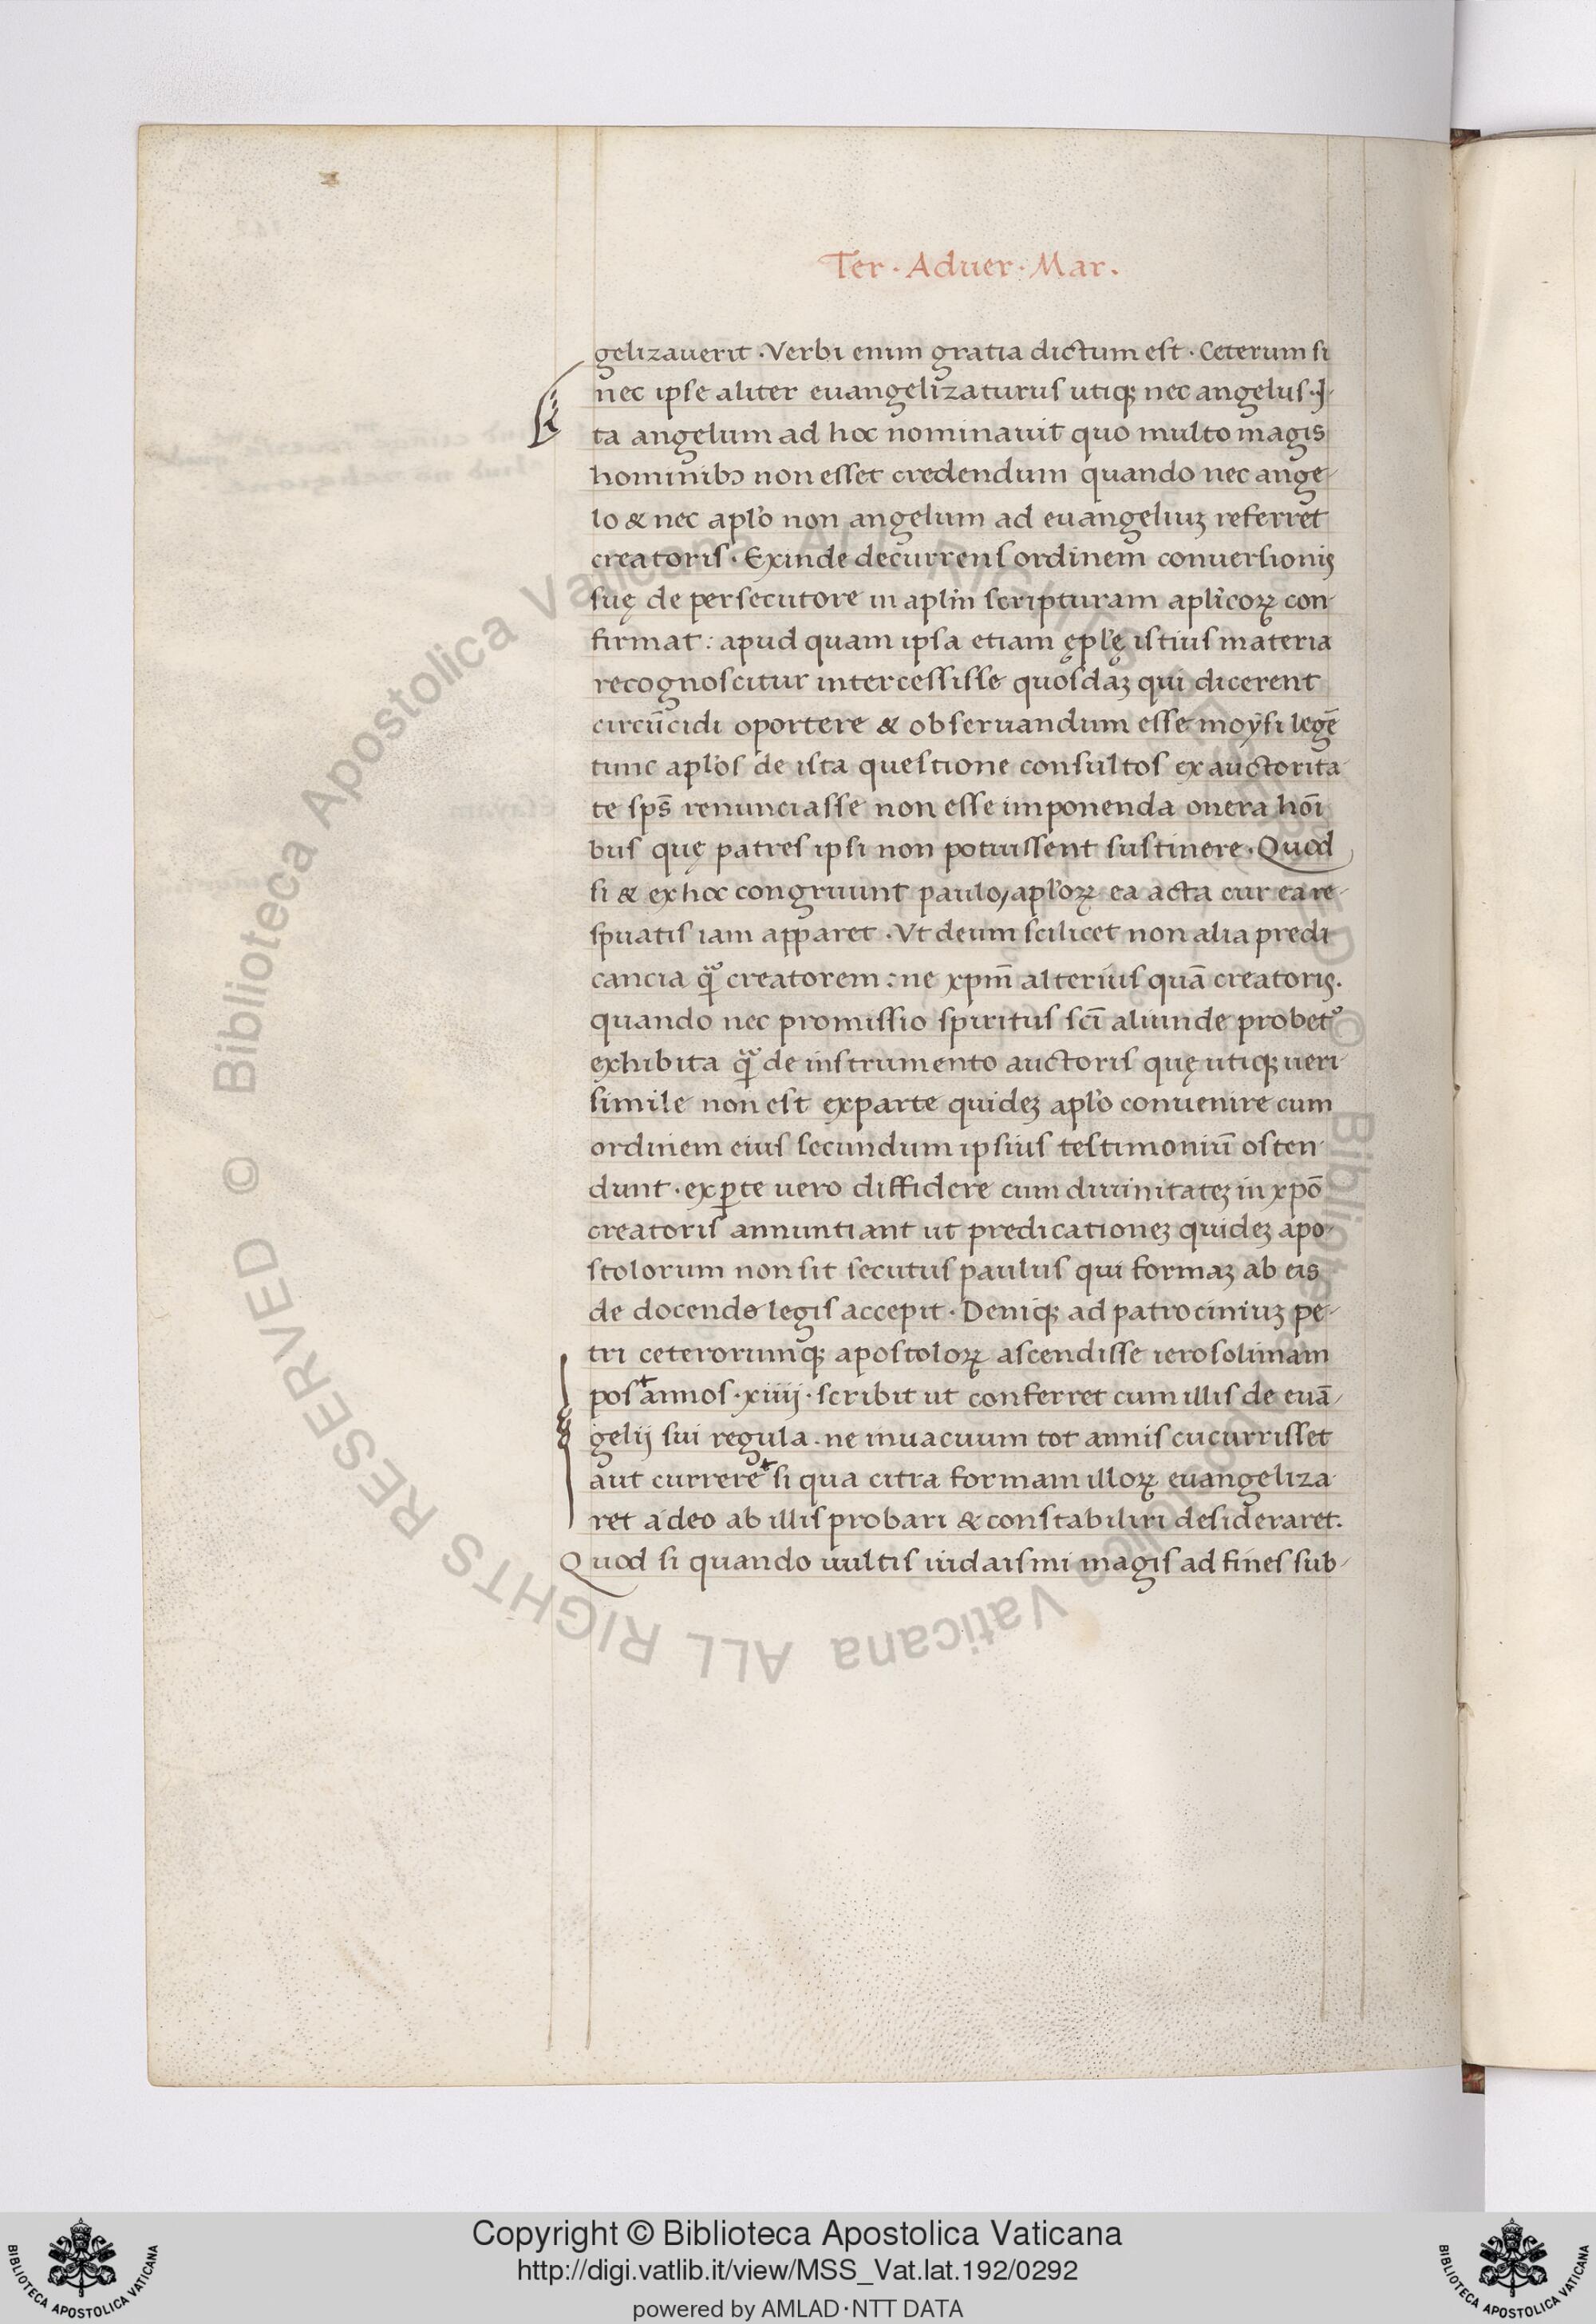 Ter · Aduer · Mar.
gelizauerit · Verbi enim gratia dictum est · Ceterum si
nec ipse aliter euangelizaturus utiqꝫ nec angelus · J-
ta angelum ad hoc nominauit quo multo magis
hominibꝰ non esset credendum quando nec ange-
lo & nec apl'o non angelum ad euangeliuꝫ referret
creatoris · Exinde decurrens ordinem conuersionis
suę de persecutore in apl'm scripturam apl'icoꝝ con-
firmat : apud quam ipsa etiam ępl'ę istius materia
recognoscitur intercessisse quosdaꝫ qui dicerent
circūcidi oportere & obseruandum esse moẏsi legē
tunc apl'os de ista questione consultos ex auctorita
te sps̄ renunciasse non esse imponenda onera hoī
bus quę patres ipsi non potuissent sustinere · Quod
si & ex hoc congruunt paulo, apl'oꝝ ea acta cur ea re-
spuatis iam apparet · Vt deum scilicet non alia predi
cancia qͣꝫ creatorem : ne xpm̄ alterius quā creatoris.
quando nec promissio spiritus scī aliunde probet᷑
exhibita qͣꝫ de instrumento auctoris quę utiqꝫ ueri-
simile non est exparte quideꝫ apl'o conuenire cum
ordinem eius secundum ipsius testimoniū osten-
dunt · exꝑte uero diffidere cum diuinitateꝫ in xpō
creatoris annuntiant ut predicationeꝫ quideꝫ apo-
stolorum non sit secutus paulus qui formaꝫ ab eis
de docendo legis accepit · Deniqꝫ ad patrociniuꝫ pe-
tri ceterorumqꝫ apostoloꝝ ascendisse ierosolimam
post annos · xiiij · scribit ut conferret cum illis de euā-
gelij sui regula . ne inuacuum tot annis cucurrisset
aut curreret si qua citra formam illoꝝ euangeliza-
ret adeo ab illis probari & constabiliri desideraret.
Quod si quando uultis iudaismi magis ad fines sub-
© Biblioteca Apostolica Vaticana ALL RIGHTS RESERVED © Biblioteca Apostolica Vaticana ALL RIGHTS RESERVED
Copyright © Biblioteca Apostolica Vaticana
http://digi.vatlib.it/view/MSS_Vat.lat.192/0292
powered by AMLAD·NTT DATA
BIBLIOTECA APOSTOLICA VATICANA
BIBLIOTECA APOSTOLICA VATICANA